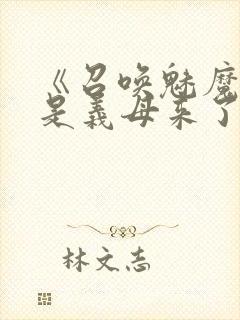 《召唤魅魔
是义母来了
林文志